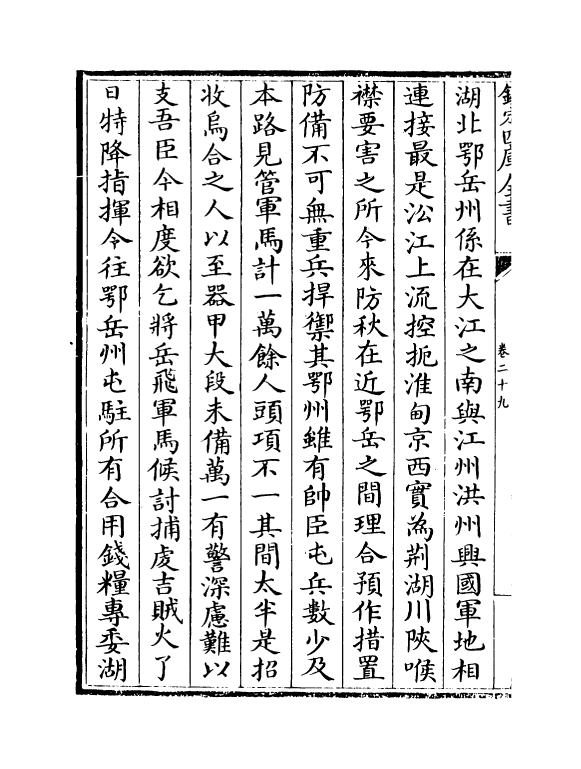 欽定四庫全書
卷二十九
湖北鄂岳州係在大江之南與江州洪州興國軍地相
連接最是㳂江上流控扼淮甸京西實為荆湖川陜喉
襟要害之所今來防秋在近鄂岳之間理合預作措置
防備不可無重兵捍禦其鄂州雖有帥臣屯兵數少及
本路見管軍馬計一萬餘人頭項不一其間太半是招
收烏合之人以至器甲大段未備萬一有警深慮難以
支吾臣今相度欲乞將岳飛軍馬候討捕䖍吉賊火了
日特降指揮令往鄂岳州屯駐所有合用錢糧專委湖